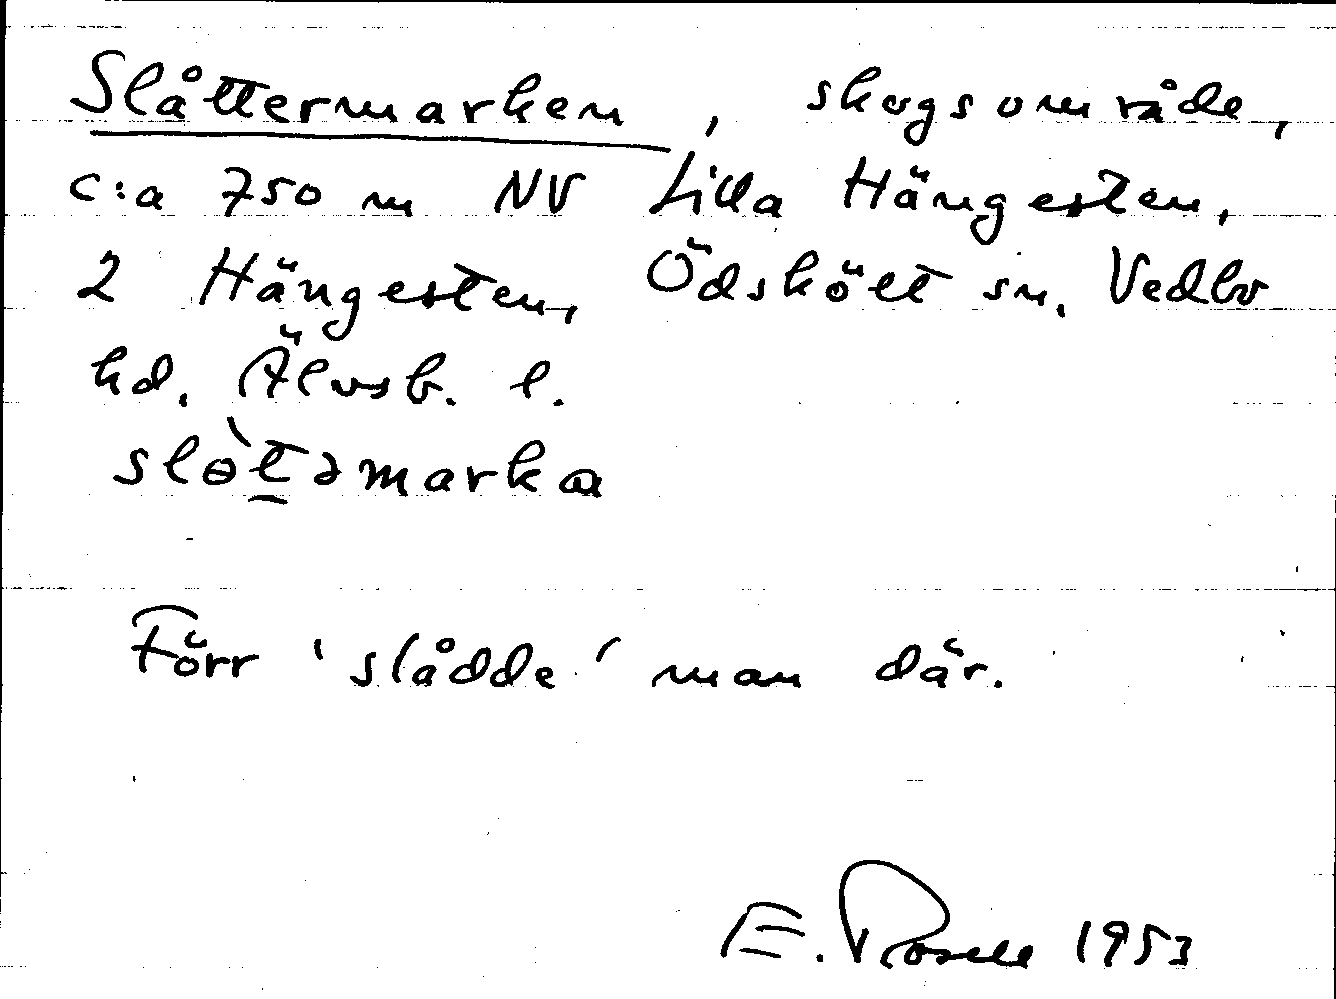 Slåttermarken, skogsområde,
c:a 750 m NV Lilla Hängesten,
2 Hängesten, Ödskölt sn. Vedbo
hd. Älvsb. l.
slòt̲əmarka
Förr 'slådde' man där.
E. Rosell 1953